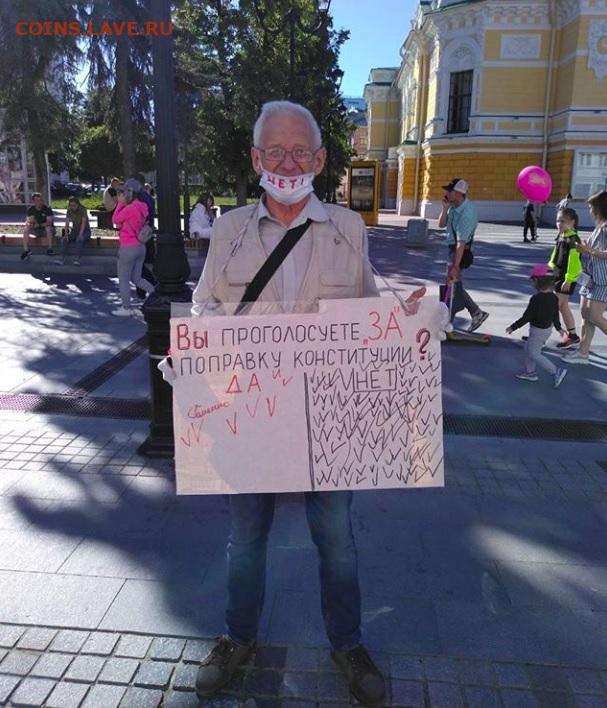 COINS.LAVE.RU
НЕТ!
Вы ПРОГОЛОСУЕТЕ „ЗА"
ПОПРАВКУ КОНСТИТУЦИИ?
ДА
НЕТ